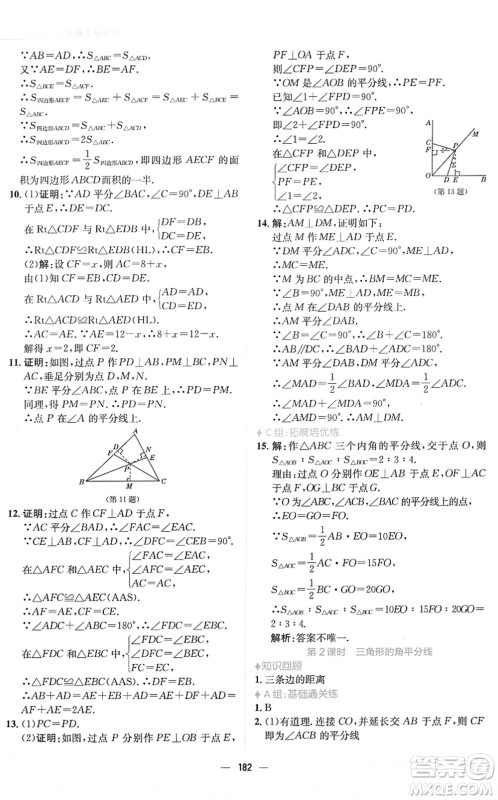 ∵AB=AD, ∴S△ABC=S△ACD.
∴S△BCE=S△ACF.
∴S四边形AECF=S△AEC+S△ACF=S△AEC+S△BCE=S△ABC.
∵S四边形ABCD=S△ABC+S△ACD,
∴S四边形ABCD=2S△ABC.
∴S四边形AECF=1/2S四边形ABCD,即四边形AECF的面
积为四边形ABCD面积的一半.
10.(1)证明:∵AD平分∠BAC,∠C=90°,DE⊥AB
于点E,∴DC=DE.
在Rt△CDF与Rt△EDB中,{DF=DB,
DC=DE,
∴Rt△CDF≌Rt△EDB(HL).∴CF=EB.
(2)解:设CF=x,则AC=8+x,
由(1)知BE=CF=x,
在Rt△ACD与Rt△AED中,{AD=AD,
CD=DE,
∴Rt△ACD≌Rt△AED(HL).
∴AC=AE.∵AE=12-x,∴8+x=12-x,
解得x=2.即CF=2.
11.证明:如图,过点P作PD⊥AB,PM⊥BC,PN⊥
AC,垂足分别为点D,点M,点N.
∵BE平分∠ABC,点P在BE上,∴PD=PM.
同理,PM=PN.∴PD=PN.
∴点P在∠BAC的平分线上.
A
D
F
N
E
P
B
M
C
(第11题)
12.证明:过点C作CF⊥AD于点F,
∵AC平分∠BAD,∴∠FAC=∠EAC.
∵CE⊥AB,CF⊥AD,∴∠DFC=∠CEA=90°.
在△AFC和△AEC中,{∠AFC=∠AEC,
∠FAC=∠EAC,
AC=AC,
∴△AFC≌△AEC(AAS).
∴AF=AE,CF=CE.
∵∠ADC+∠B=180°,∴∠FDC=∠EBC.
在△FDC和△EBC中,{∠FDC=∠EBC,
∠DFC=∠BEC,
CF=CE,
∴△FDC≌△EBC(AAS).∴DC=BC.
13.(1)PC=PD
(2)证明:如图,过点P分别作PE⊥OB于点E,
PF⊥OA于点F,
∴∠CFP=∠DEP=90°.
∵OM是∠AOB的平分线,∴PE=PF.
已知∠1+∠FPD=90°,
∵∠AOB=90°,∴∠FPE=90°.
∴∠2+∠FPD=90°.
∴∠1=∠2.
在△CFP和△DEP中,
{∠CFP=∠DEP,
PF=PE,
∠1=∠2,
∴△CFP≌△DEP(ASA).∴PC=PD.
A
C
M
F
P
O
D
E
B
(第13题)
14.解:AM⊥DM,证明如下:
过点M作MN⊥AD于点N.
∵DM平分∠ADC,∴∠1=∠ADM.
∵∠C=90°,MN⊥AD,∴MC=MN.
∵M为BC的中点,∴MC=MB.∴MN=MB.
又∵∠B=90°,MN⊥AD,
∴点M在∠DAB的平分线上,
∴AM平分∠DAB.
∵∠B=∠C=90°,∴∠B+∠C=180°.
∴AB∥DC.∴∠ADC+∠BAD=180°.
∴∠MAD+∠ADM=90°.
∴∠AMD=90°.∴AM⊥DM.
C组:拓展培优练
15.解:如图,作△ABC三个内角的平分线,交于点O,则
S△AOB∶S△BOC∶S△AOC=2∶4∶3.
理由:过点O分别作OE⊥AB于点E,OF⊥AC于点
F,OG⊥BC于点G,
∵O为内角平分线的交点,
∴OE=OF=OG.
∵S△AOB=1/2·AB·EO=10EO,
S△AOC=1/2·AC·FO=15FO,
S△BOC=1/2·BC·GO=20GO,
∴S△AOB∶S△BOC∶S△AOC=2∶4∶3.
解析:答案不唯一.
第2课时 三角形的角平分线
知识回顾
1.三条边的距离
A组:基础通关练
1.B
2.(1)有道理.连接CO,并延长交AB于点F,则CF
即为∠ACB的平分线
182